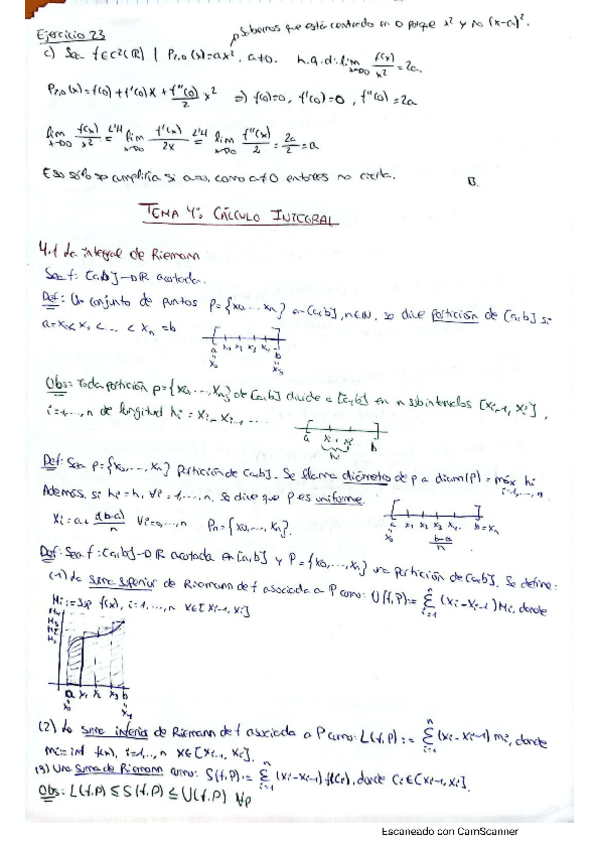 Sabemos que está centrado en 0 porque x² y no (x-a)².
Ejercicio 23
c) Sea f∈C²(ℝ) | P₂,₀(x)=ax², a≠0. h.q.d: lim x→0 f(x)/x² = 2a.
P₂,₀(x)=f(0)+f'(0)x+f''(0)/2 x² ⇒ f(0)=0, f'(0)=0, f''(0)=2a
lim x→0 f(x)/x² =(L'H) lim x→0 f'(x)/2x =(L'H) lim x→0 f''(x)/2 = 2a/2 = a
Eso sólo se cumpliría si a=0, como a≠0 entonces no cierta.
TEMA 4: CÁLCULO INTEGRAL
4.1 La integral de Riemann
Sea f: [a,b]→ℝ acotada.
Def: Un conjunto de puntos P={x₀,...,xₙ} en [a,b], n∈ℕ, se dice partición de [a,b] si
a=x₀<x₁<...<xₙ=b
a x₁ x₂ x₃ x₄ b
Obs: Toda partición p={x₀,...,xₙ} de [a,b] divide a [a,b] en n subintervalos [xᵢ₋₁, xᵢ],
i=1,...,n de longitud hᵢ = xᵢ-xᵢ₋₁ ....
a b
Def: Sea P={x₀,...,xₙ} Partición de [a,b]. Se llama diámetro de p a diam(P) = máx hᵢ i=1,...,n
Además, si hᵢ=h, ∀i=1,...,n, se dice que P es uniforme.
xᵢ=a+i(b-a)/n ∀i=0,...,n Pₙ={x₀,...,xₙ}.
a x₁ x₂ x₃ x₄ b=xₙ
x₀ b-a/n
Def: Sea f:[a,b]→ℝ acotada en [a,b] y P={x₀,...,xₙ} una partición de [a,b]. Se define:
(1) La suma superior de Riemann de f asociada a P como: U(f,P):= Σⁿᵢ₌₁ (xᵢ-xᵢ₋₁)Mᵢ, donde
Mᵢ:=sup f(x), i=1,...,n x∈[xᵢ₋₁,xᵢ]
a x₁ x₂ x₃ b
(2) La suma inferior de Riemann de f asociada a P como: L(f,P):= Σⁿᵢ₌₁ (xᵢ-xᵢ₋₁)mᵢ, donde
mᵢ=inf f(x), i=1,...,n x∈[xᵢ₋₁, xᵢ].
(3) Una suma de Riemann como: S(f,P):= Σⁿᵢ₌₁ (xᵢ-xᵢ₋₁)f(cᵢ), donde cᵢ∈[xᵢ₋₁,xᵢ].
Obs: L(f,P)≤S(f,P)≤U(f,P) ∀p
Escaneado con CamScanner